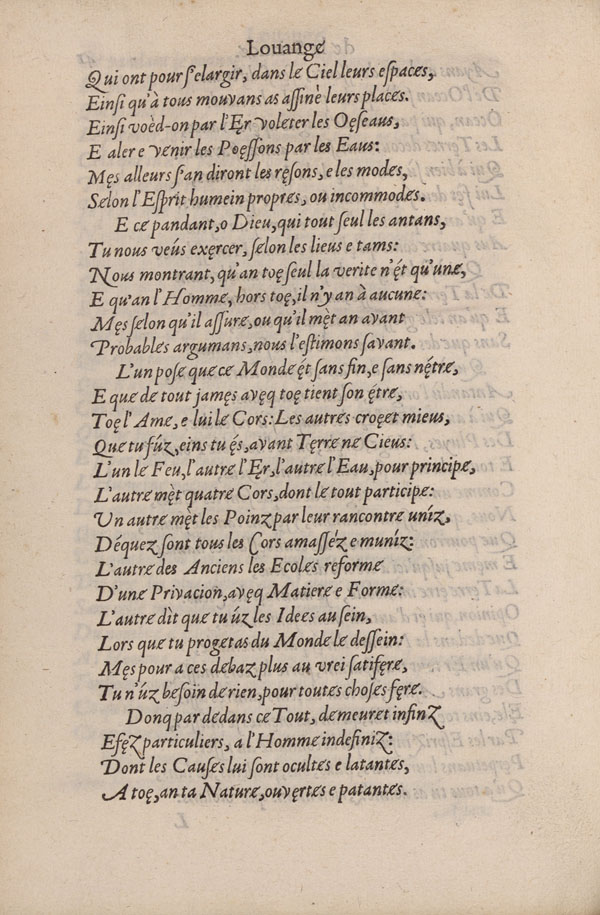 Louange
Qui ont pour s'elargir, dans le Ciel leurs espaces,
Einſi qu'à tous mouvans as aſſinè leurs places.
Einſi voèd-on par l'Er voleter les Oęſeaus,
E aler e venir les Poęſſons par les Eaus:
Męs alleurs ſ'an diront les ręſons, e les modes,
Selon l'Eſprit humein propres, ou incommodes.
E ce pandant, o Dieu, qui tout ſeul les antans,
Tu nous veús exęrcer, ſelon les lieus e tams:
Nous montrant, qu'an toę ſeul la verite n'ę́t qu'une,
E qu'an l'Homme, hors toę, il n'y an à aucune:
Męs ſelon qu'il aſſure, ou qu'il mèt an avant
Probables argumans, nous l'eſtimons ſavant.
L'un poſe que ce Monde ę́t sans fin, e sans nę́tre,
E que de tout jamęs avęq toę tient ſon ę́tre,
Toę l'Ame, e lui le Cors: Les autres croęet mieus,
Que tu fúz, eins tu ę́s, avant Tęrre ne Cieus:
L'un le Feu, l'autre l'Ęr, l'autre l'Eau, pour principe,
L'autre mèt quatre Cors, dont le tout participe:
Un autre mèt les Poinz par leur rancontre uníz,
Déquez ſont tous les Cors amaſſéz e muniz:
L'autre des Anciens les Ecoles reforme
D'une Privacion, avęq Matiere e Forme:
L'autre dìt que tu úz les Idees au ſein,
Lors que tu progetas du Monde le deſſein:
Męs pour a ces debaz plus au vrei ſatiſęre,
Tu n'úz beſoin de rien, pour toutes choſes fęre.
Donq par dedans ce Tout, demeuret infinz
Efęz particuliers, a l'Homme indefiniz:
Dont les Cauſes lui ſont ocultes e latantes,
A toę, an ta Nature, ouvęrtes e patantes.
L